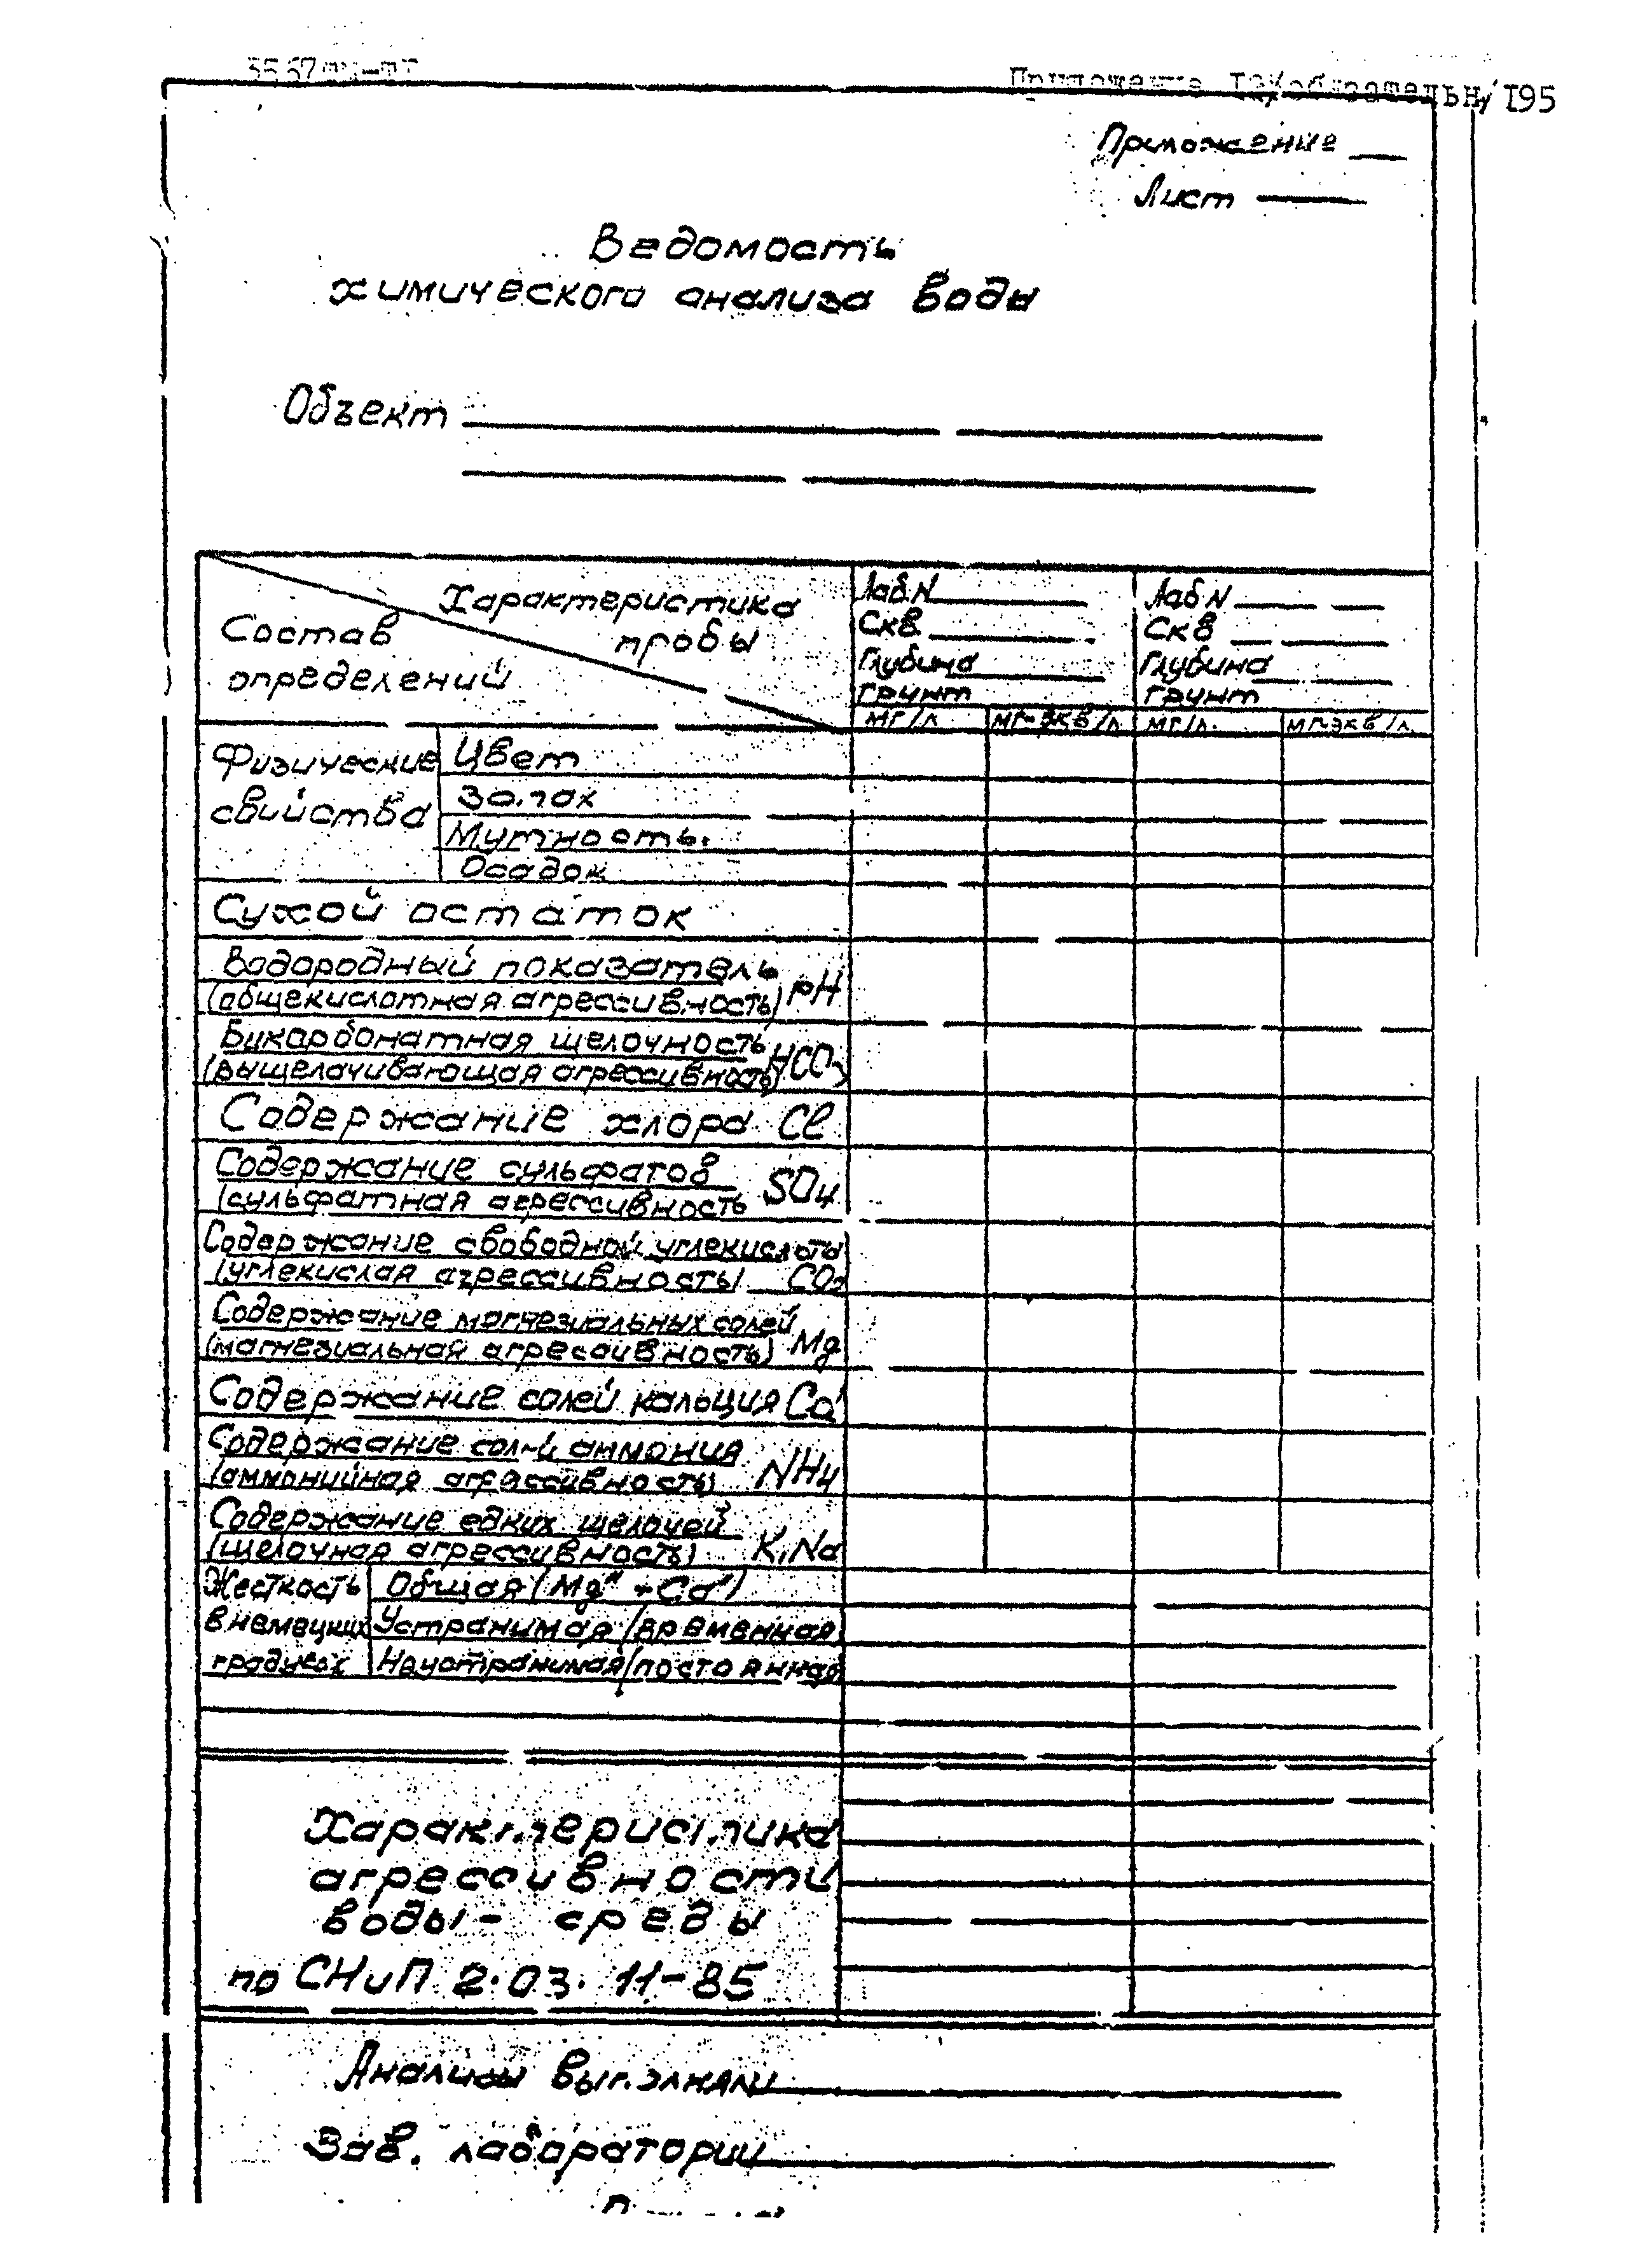 5567тм-т1
Приложение 12/обязательн/ 195
Приложение
Лист
Ведомость
химического анализа воды
Объект
Характеристика
пробы
Состав
определений
Лаб.N
Скв.
Глубина
грунт
мг/л
мг-экв/л
Лаб N
Скв
Глубина
грунт
мг/л.
мг-экв/л
Физические
свийства
Цвет
Запах
Мутность.
Осадок
Сухой остаток
Водородный показатель
(общекислотная агрессивность) рН
Бикарбонатная щелочность
(выщелачивающая агрессивность) HCO3
Содержание хлора Cl
Содержание сульфатов
(сульфатная агрессивность SO4
Содержание свободной углекислота
(углекислая агрессивность) CO2
Содержание магнезиальных солей
(магнезиальная агрессивность) Mg
Содержание солей кальция Ca
Содержание солей аммония
(аммонийная агрессивность) NH4
Содержание едких щелочей
(щелочная агрессивность) K,Na
Жесткость
в немецких
градусах
Общая (Mg" + Ca")
Устранимая /временная/
Неустранимая /постоянная
Характеристика
агрессивности
воды- среды
по СНиП 2.03. 11-85
Анализы выполняли
Зав. лаборатории